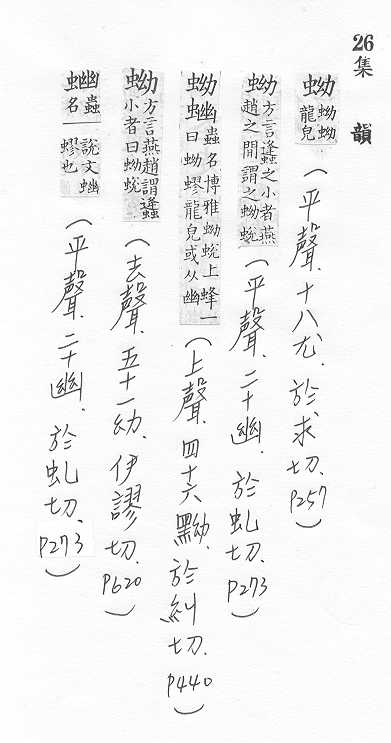 26集 韻
蚴 蚴蚴龍皃(平聲.十八尤.於求切.P257)
蚴 方言蠭之小者燕趙之閒謂之蚴蜕(平聲.二十幽.於虬切.P273)
蚴𧕟 蟲名博雅蚴蜕土蜂一曰蚴蟉龍皃或从幽(上聲.四十六黝.於糾切.P440)
蚴 方言燕趙謂蠭小者曰蚴蜕(去聲.五十一幼.伊謬切.P620)
蟲名一說文蟉也(平聲.二十幽.於虬切.P273)